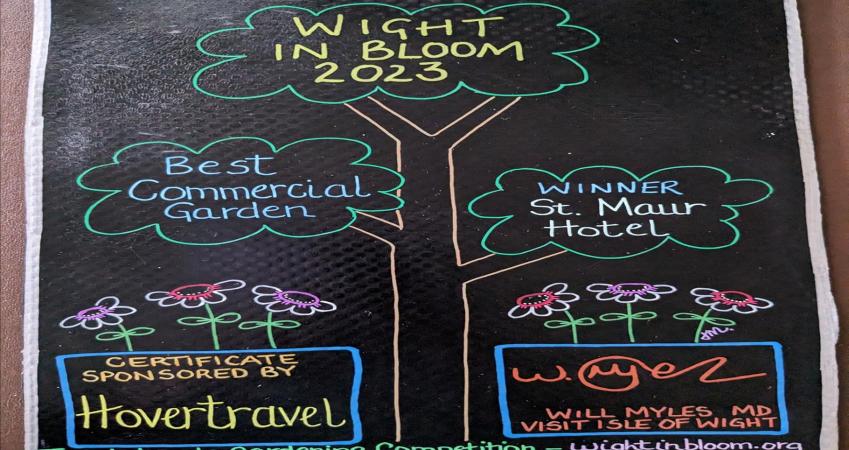 WIGHT
IN BLOOM
2023
Best
Commercial
Garden
WINNER
St. Maur
Hotel
CERTIFICATE
SPONSORED BY
Hovertravel
W. Myles
WILL MYLES MD
VISIT ISLE OF WIGHT
Gardening Competition – wightinbloom.org